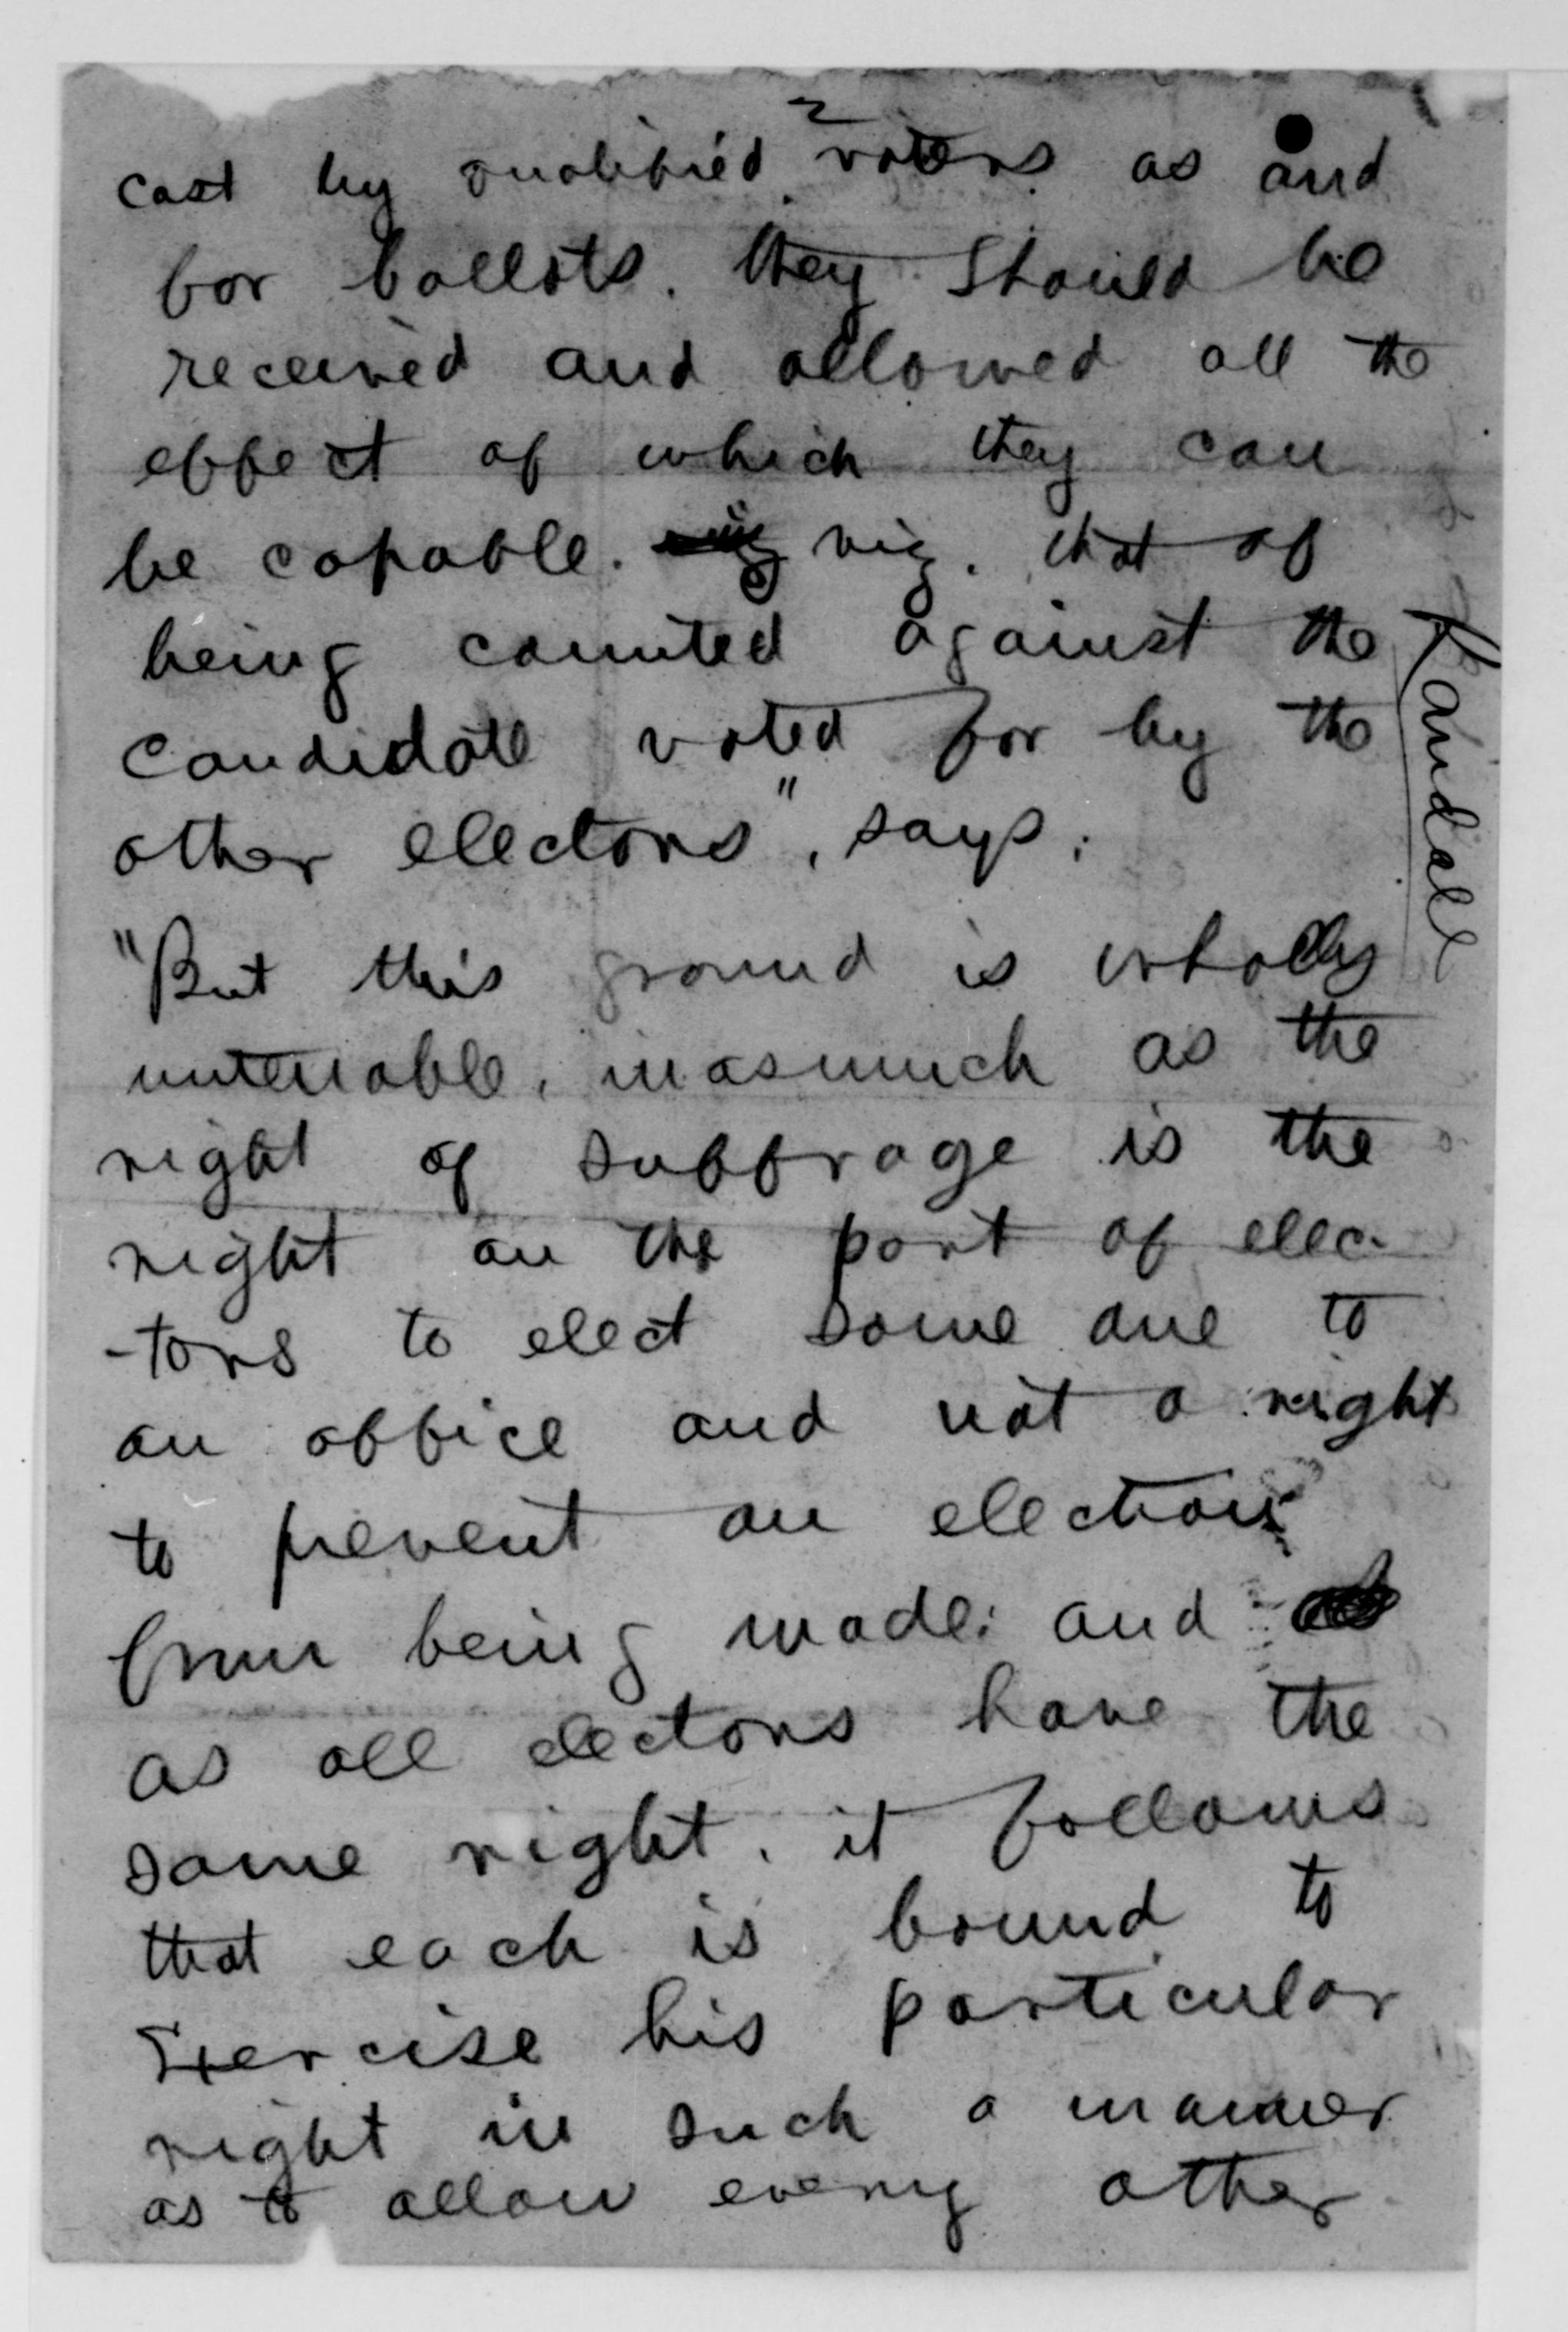 2
cast by qualified voters as and
for ballots. they should be
received and allowed all the
effect of which they can
be capable. viz. that of
being counted against the
candidate voted for by the
other electors", says:
"But this ground is wholly
untenable, inasmuch as the
right of suffrage is the
right on the part of elec-
-tors to elect some one to
an office and not a right
to prevent an election
from being made: and
as all electors have the
same right, it follows
that each is bound to
Exercise his particular
right in such a manner
as to allow every other
Randall